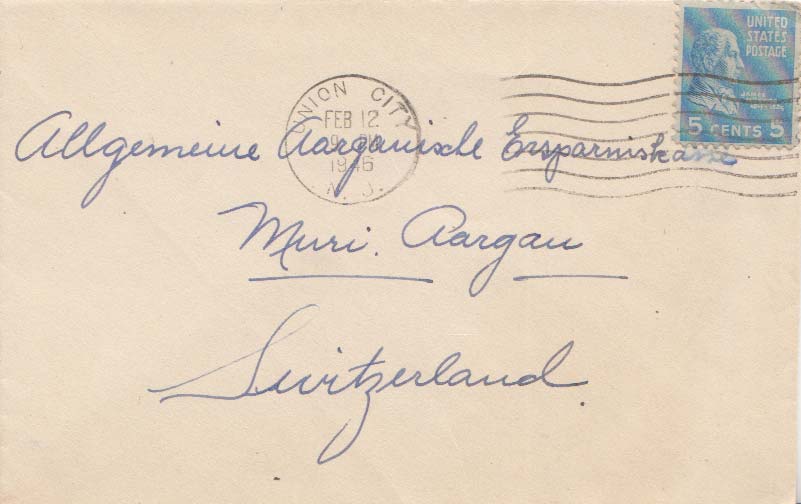 UNITED
STATES
POSTAGE
JAMES
5 CENTS 5
UNION CITY
FEB 12
9 PM
1946
N. J.
Allgemeine Aarganische Ersparniskasse
Muri. Aargau
Switzerland